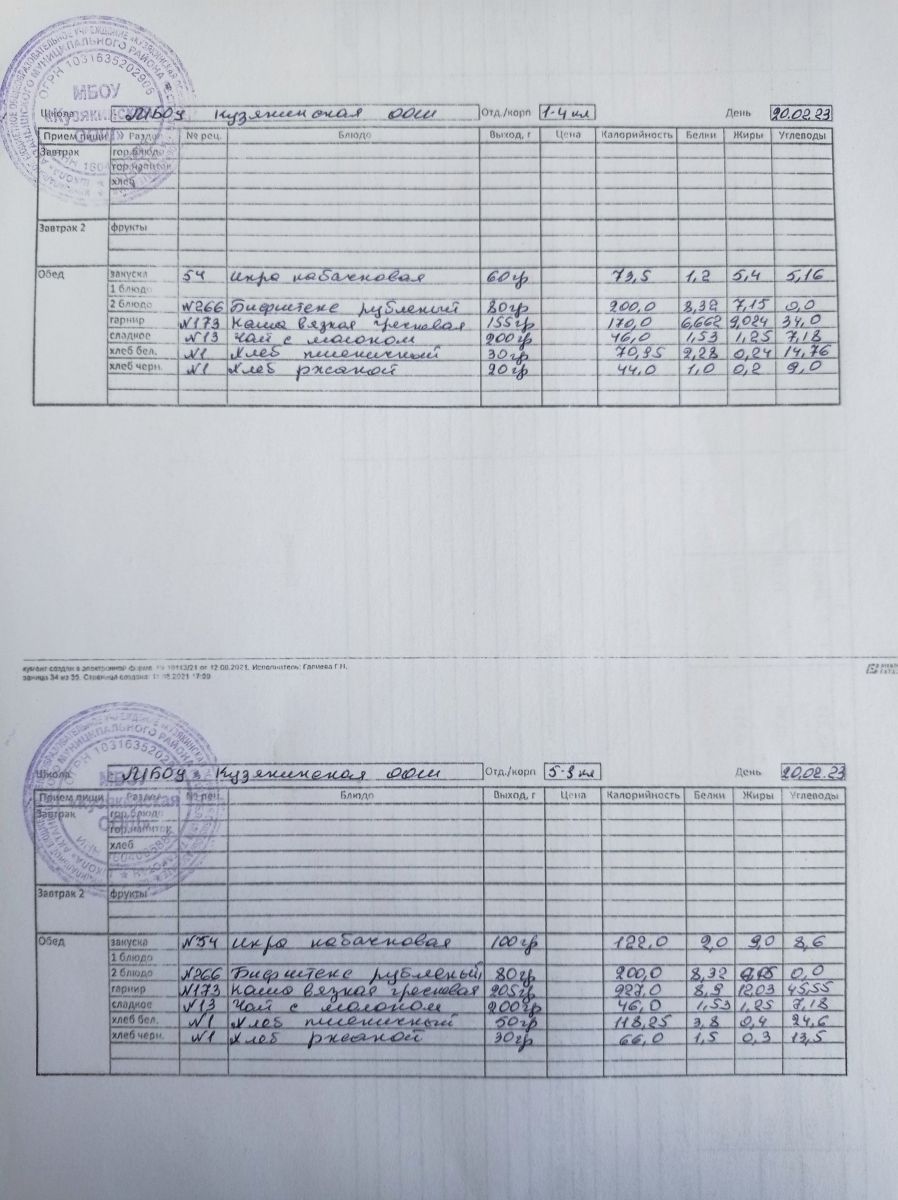 МБОУ
«Кузякинская
ООШ»
ОГРН 1031635202905
Школа МБОУ Кузякинская ООШ Отд./корп 1-4 кл День 20.02.23
Прием пищи Раздел № рец. Блюдо Выход, г Цена Калорийность Белки Жиры Углеводы
Завтрак гор.блюдо
гор.напиток
хлеб
Завтрак 2 фрукты
Обед закуска 54 Икра кабачковая 60гр 73,5 1,2 5,4 5,16
1 блюдо
2 блюдо №266 Бифштекс рубленый 80гр 200,0 8,32 7,15 0,0
гарнир №173 Каша вязкая гречневая 155гр 170,0 6,662 9,024 34,0
сладкое №13 Чай с молоком 200гр 46,0 1,53 1,25 7,18
хлеб бел. №1 Хлеб пшеничный 30гр 70,95 2,28 0,24 14,76
хлеб черн. №1 Хлеб ржаной 20гр 44,0 1,0 0,2 9,0
от 12.08.2021. Исполнитель: Галиева Г.Н.
34 из 35. Страница создана:
МБОУ
«Кузякинская
ООШ»
Школа МБОУ Кузякинская ООШ Отд./корп 5-9 кл День 20.02.23
Прием пищи Раздел № рец. Блюдо Выход, г Цена Калорийность Белки Жиры Углеводы
Завтрак гор.блюдо
гор.напиток
хлеб
Завтрак 2 фрукты
Обед закуска №54 Икра кабачковая 100гр 122,0 2,0 9,0 8,6
1 блюдо
2 блюдо №266 Бифштекс рубленый 80гр 200,0 8,32 0,0
гарнир №173 Каша вязкая гречневая 205гр 227,0 8,9 12,03 45,55
сладкое №13 Чай с молоком 200гр 46,0 1,53 1,25 7,18
хлеб бел. №1 Хлеб пшеничный 50гр 118,25 3,8 0,4 24,6
хлеб черн. №1 Хлеб ржаной 30гр 66,0 1,5 0,3 13,5